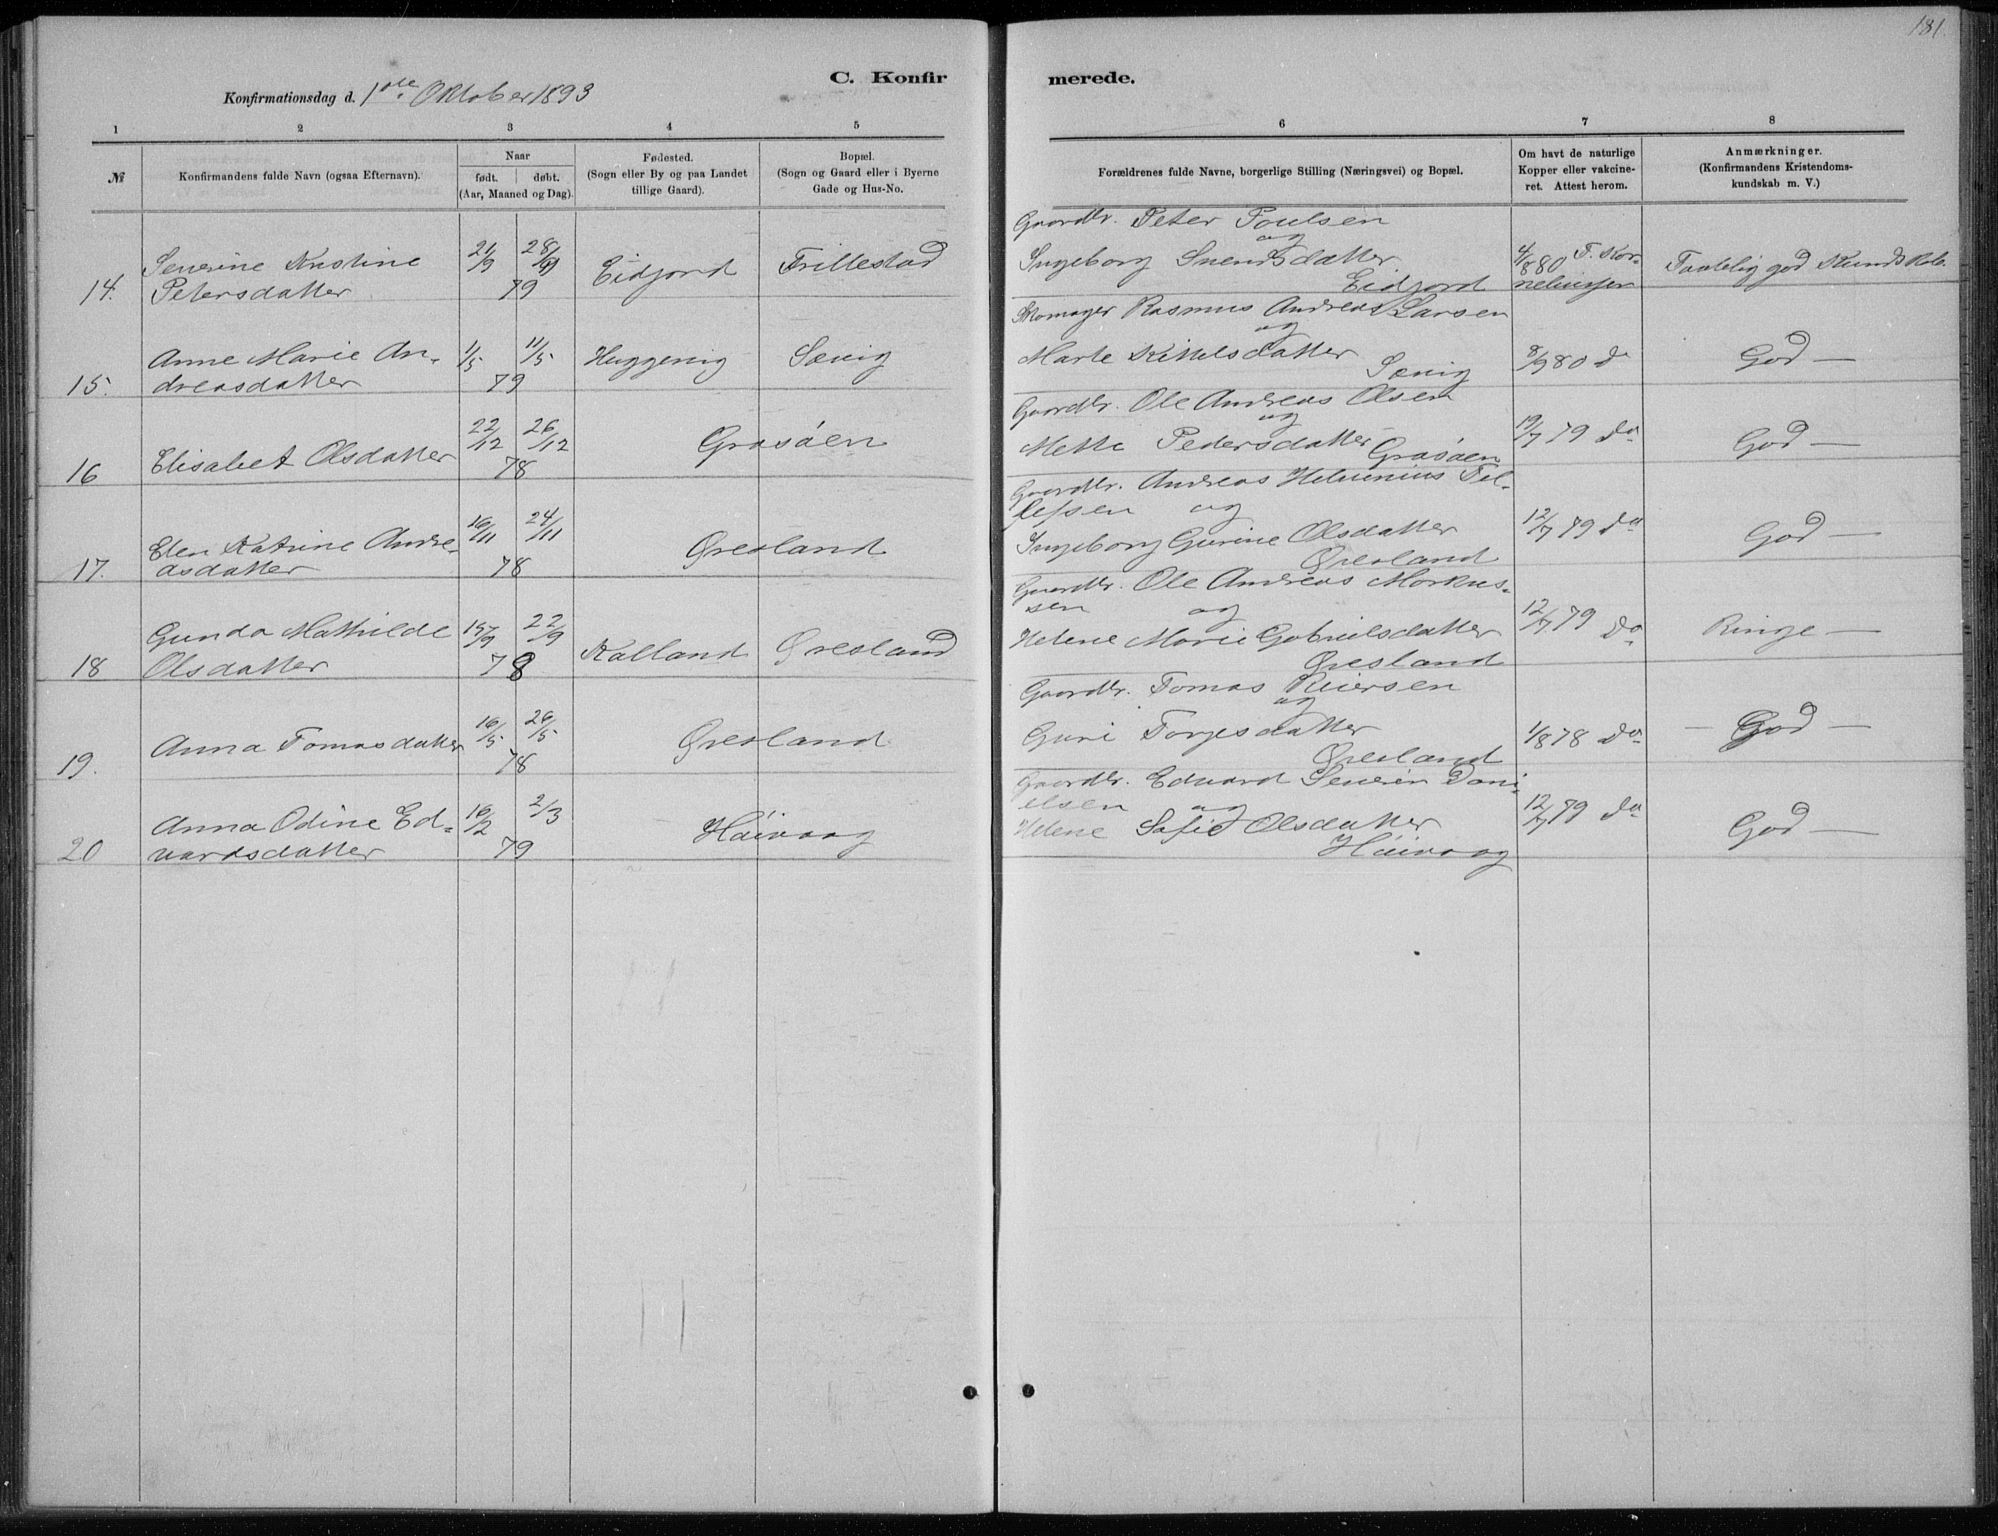 181.
C. Konfir merede.
Konfirmationsdag d. 1ste Oktober 1893
1 2 3 4 5 6 7 8
№
Konfirmandens fulde Navn (ogsaa Efternavn).
Naar
født. døbt.
(Aar, Maaned og Dag).
Fødested.
(Sogn eller By og paa Landet
tillige Gaard).
Bopæl.
(Sogn og Gaard eller i Byerne
Gade og Hus-No.
Forældrenes fulde Navne, borgerlige Stilling (Næringsvei) og Bopæl.
Om havt de naturlige
Kopper eller vakcine-
ret. Attest herom.
Anmærkninger.
(Konfirmandens Kristendoms-
kundskab m. V.)
14. Severine Kristine
Petersdatter
21/9 28/9
79
Eidjord Trillestad
Gaardbr. Peter Poulsen
og
Ingeborg Svendsdatter
Eidjord
4/8 80 T. Kor-
neliussen
Taalelig god Kundskab.
15. Anne Marie An-
dreasdatter
1/5 11/5
79
Huggenig Sævig
Skomager Rasmus Andreas Larsen
og
Marte Kittelsdatter
Sævig
8/9 80 do
God —
16 Elisabet Olsdatter
22/12 26/12
78
Grasøen
Gaardbr. Ole Andreas Olsen
og
Mette Pedersdatter Grasøen
19/7 79 Do
God —
17. Elen Katrine Andre-
asdatter
16/11 24/11
78
Øresland
Gaardbr. Andreas Helvinius Tel-
lefsen og
Ingeborg Gurine Olsdatter
Øresland
12/7 79 Do
God —
18 Gunda Mathilde
Olsdatter
15/9 22/9
78
Kalland Øresland
Gaardbr. Ole Andreas Markus-
sen og
Helene Marie Gabrielsdatter
Øresland
12/7 79 Do
Ringe —
19. Anna Tomasdatter
16/5 26/5
78
Øresland
Gaardbr. Tomas Reiersen
og
Guri Torjesdatter
Øresland
1/8 78 Do
— God —
20 Anna Odine Ed-
vardsdatter
16/2 2/3
79
Høivaag
Gaardbr. Edvard Severin Dani-
elsen og
Helene Sofie Olsdatter
Høivaag
12/7 79 Do
God —